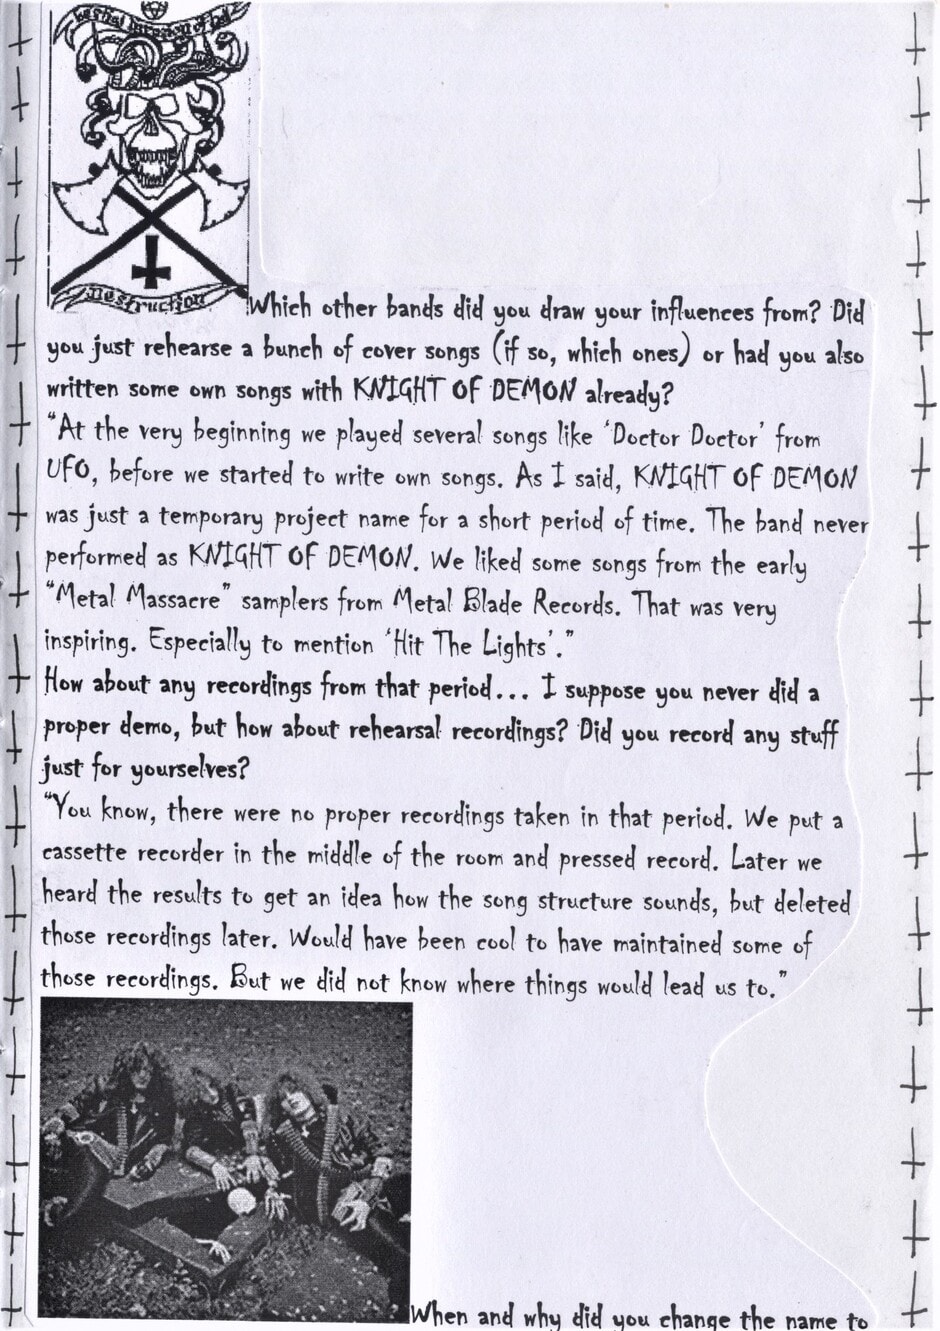 Bestial Invasion of Hell
Destruction
Which other bands did you draw your influences from? Did
you just rehearse a bunch of cover songs (if so, which ones) or had you also
written some own songs with KNIGHT OF DEMON already?
“At the very beginning we played several songs like ‘Doctor Doctor’ from
UFO, before we started to write own songs. As I said, KNIGHT OF DEMON
was just a temporary project name for a short period of time. The band never
performed as KNIGHT OF DEMON. We liked some songs from the early
“Metal Massacre” samplers from Metal Blade Records. That was very
inspiring. Especially to mention ‘Hit The Lights’.”
How about any recordings from that period... I suppose you never did a
proper demo, but how about rehearsal recordings? Did you record any stuff
just for yourselves?
“You know, there were no proper recordings taken in that period. We put a
cassette recorder in the middle of the room and pressed record. Later we
heard the results to get an idea how the song structure sounds, but deleted
those recordings later. Would have been cool to have maintained some of
those recordings. But we did not know where things would lead us to.”
When and why did you change the name to